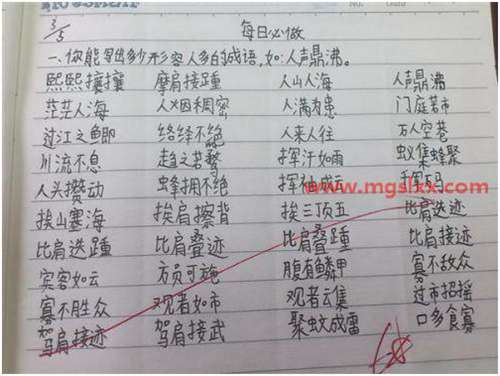 3/5
每日必做
一、你能写出多少形容人多的成语,如:人声鼎沸。
熙熙攘攘 摩肩接踵 人山人海 人声鼎沸
茫茫人海 人烟稠密 人满为患 门庭若市
过江之鲫 络绎不绝 人来人往 万人空巷
川流不息 趋之若鹜 挥汗如雨 蚁集蜂聚
人头攒动 蜂拥不绝 挥袖成云
www.mgslxx.com
挨山塞海 挨肩擦背 挨三顶五 比肩迭迹
比肩迭踵 比肩叠迹 比肩叠踵 比肩接迹
宾客如云 方员可施 腹有鳞甲 寡不敌众
寡不胜众 观者如市 观者云集 过市招摇
驾肩接迹 驾肩接武 聚蚊成雷 口多食寡